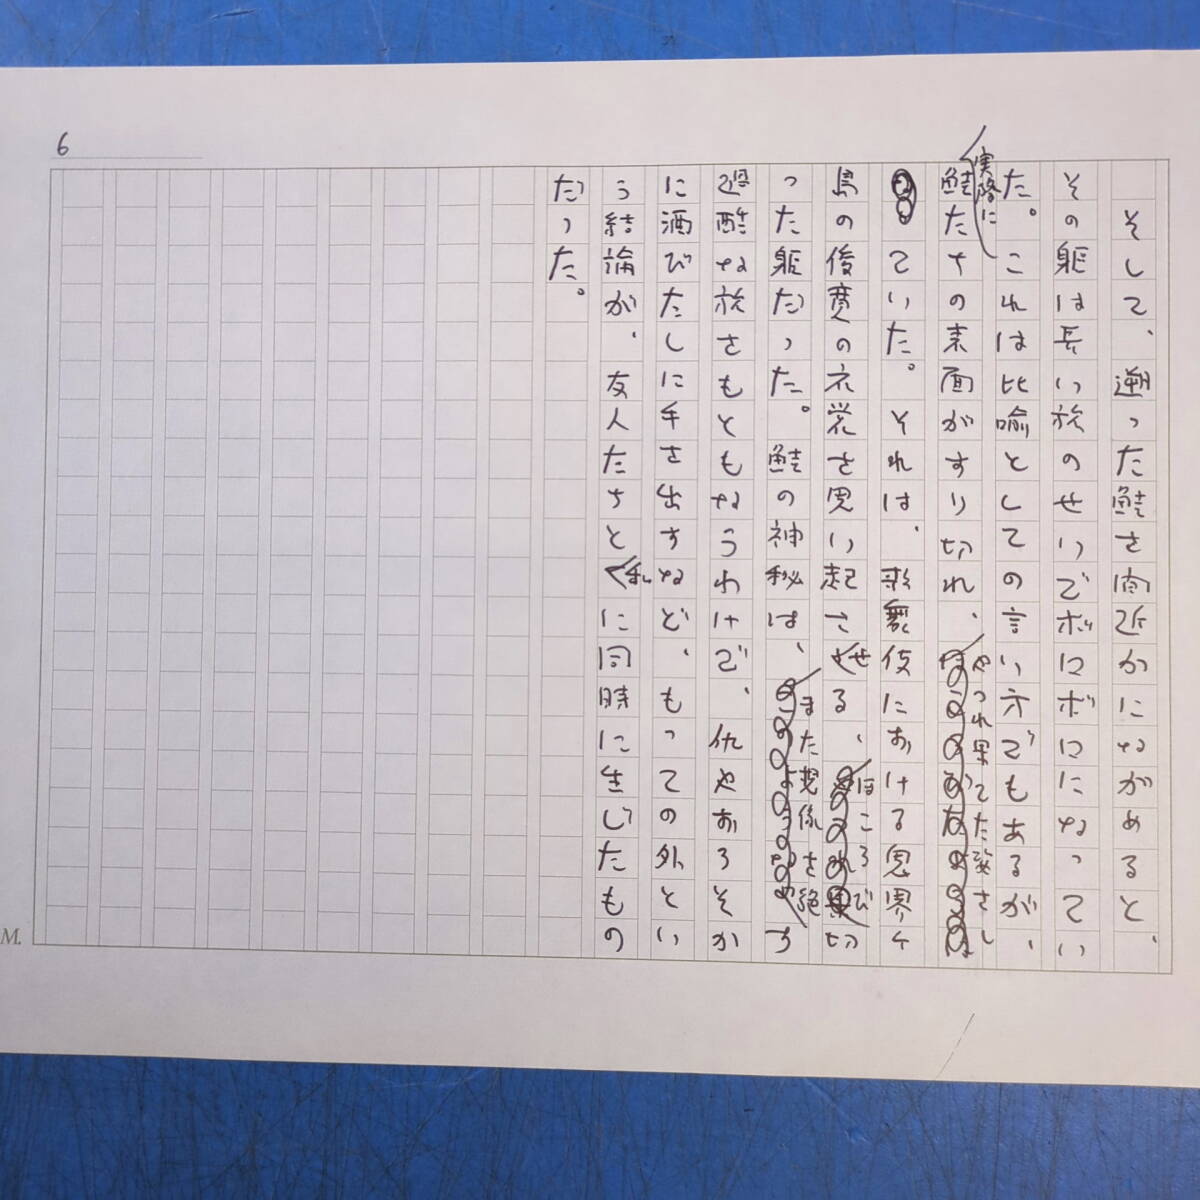 6
そして、遡った鮭を間近かにながめると、
その躯は長い旅のせいでボロボロになってい
た。これは比喩としての言い方でもあるが、
実際に
鮭たちの表面がすり切れ、
やつれ果てた姿をし
ていた。それは、歌舞伎における鬼界ヶ
島の俊寛の衣裳を思い起こ
させる、
ほころび切
った躯だった。鮭の神秘は、
また想像を絶
す
過酷な旅をもともなうわけで、仇やおろそか
に酒びたしに手を出すなど、もっての外とい
う結論が、友人たちと
私
に同時に生じたもの
だった。
M.